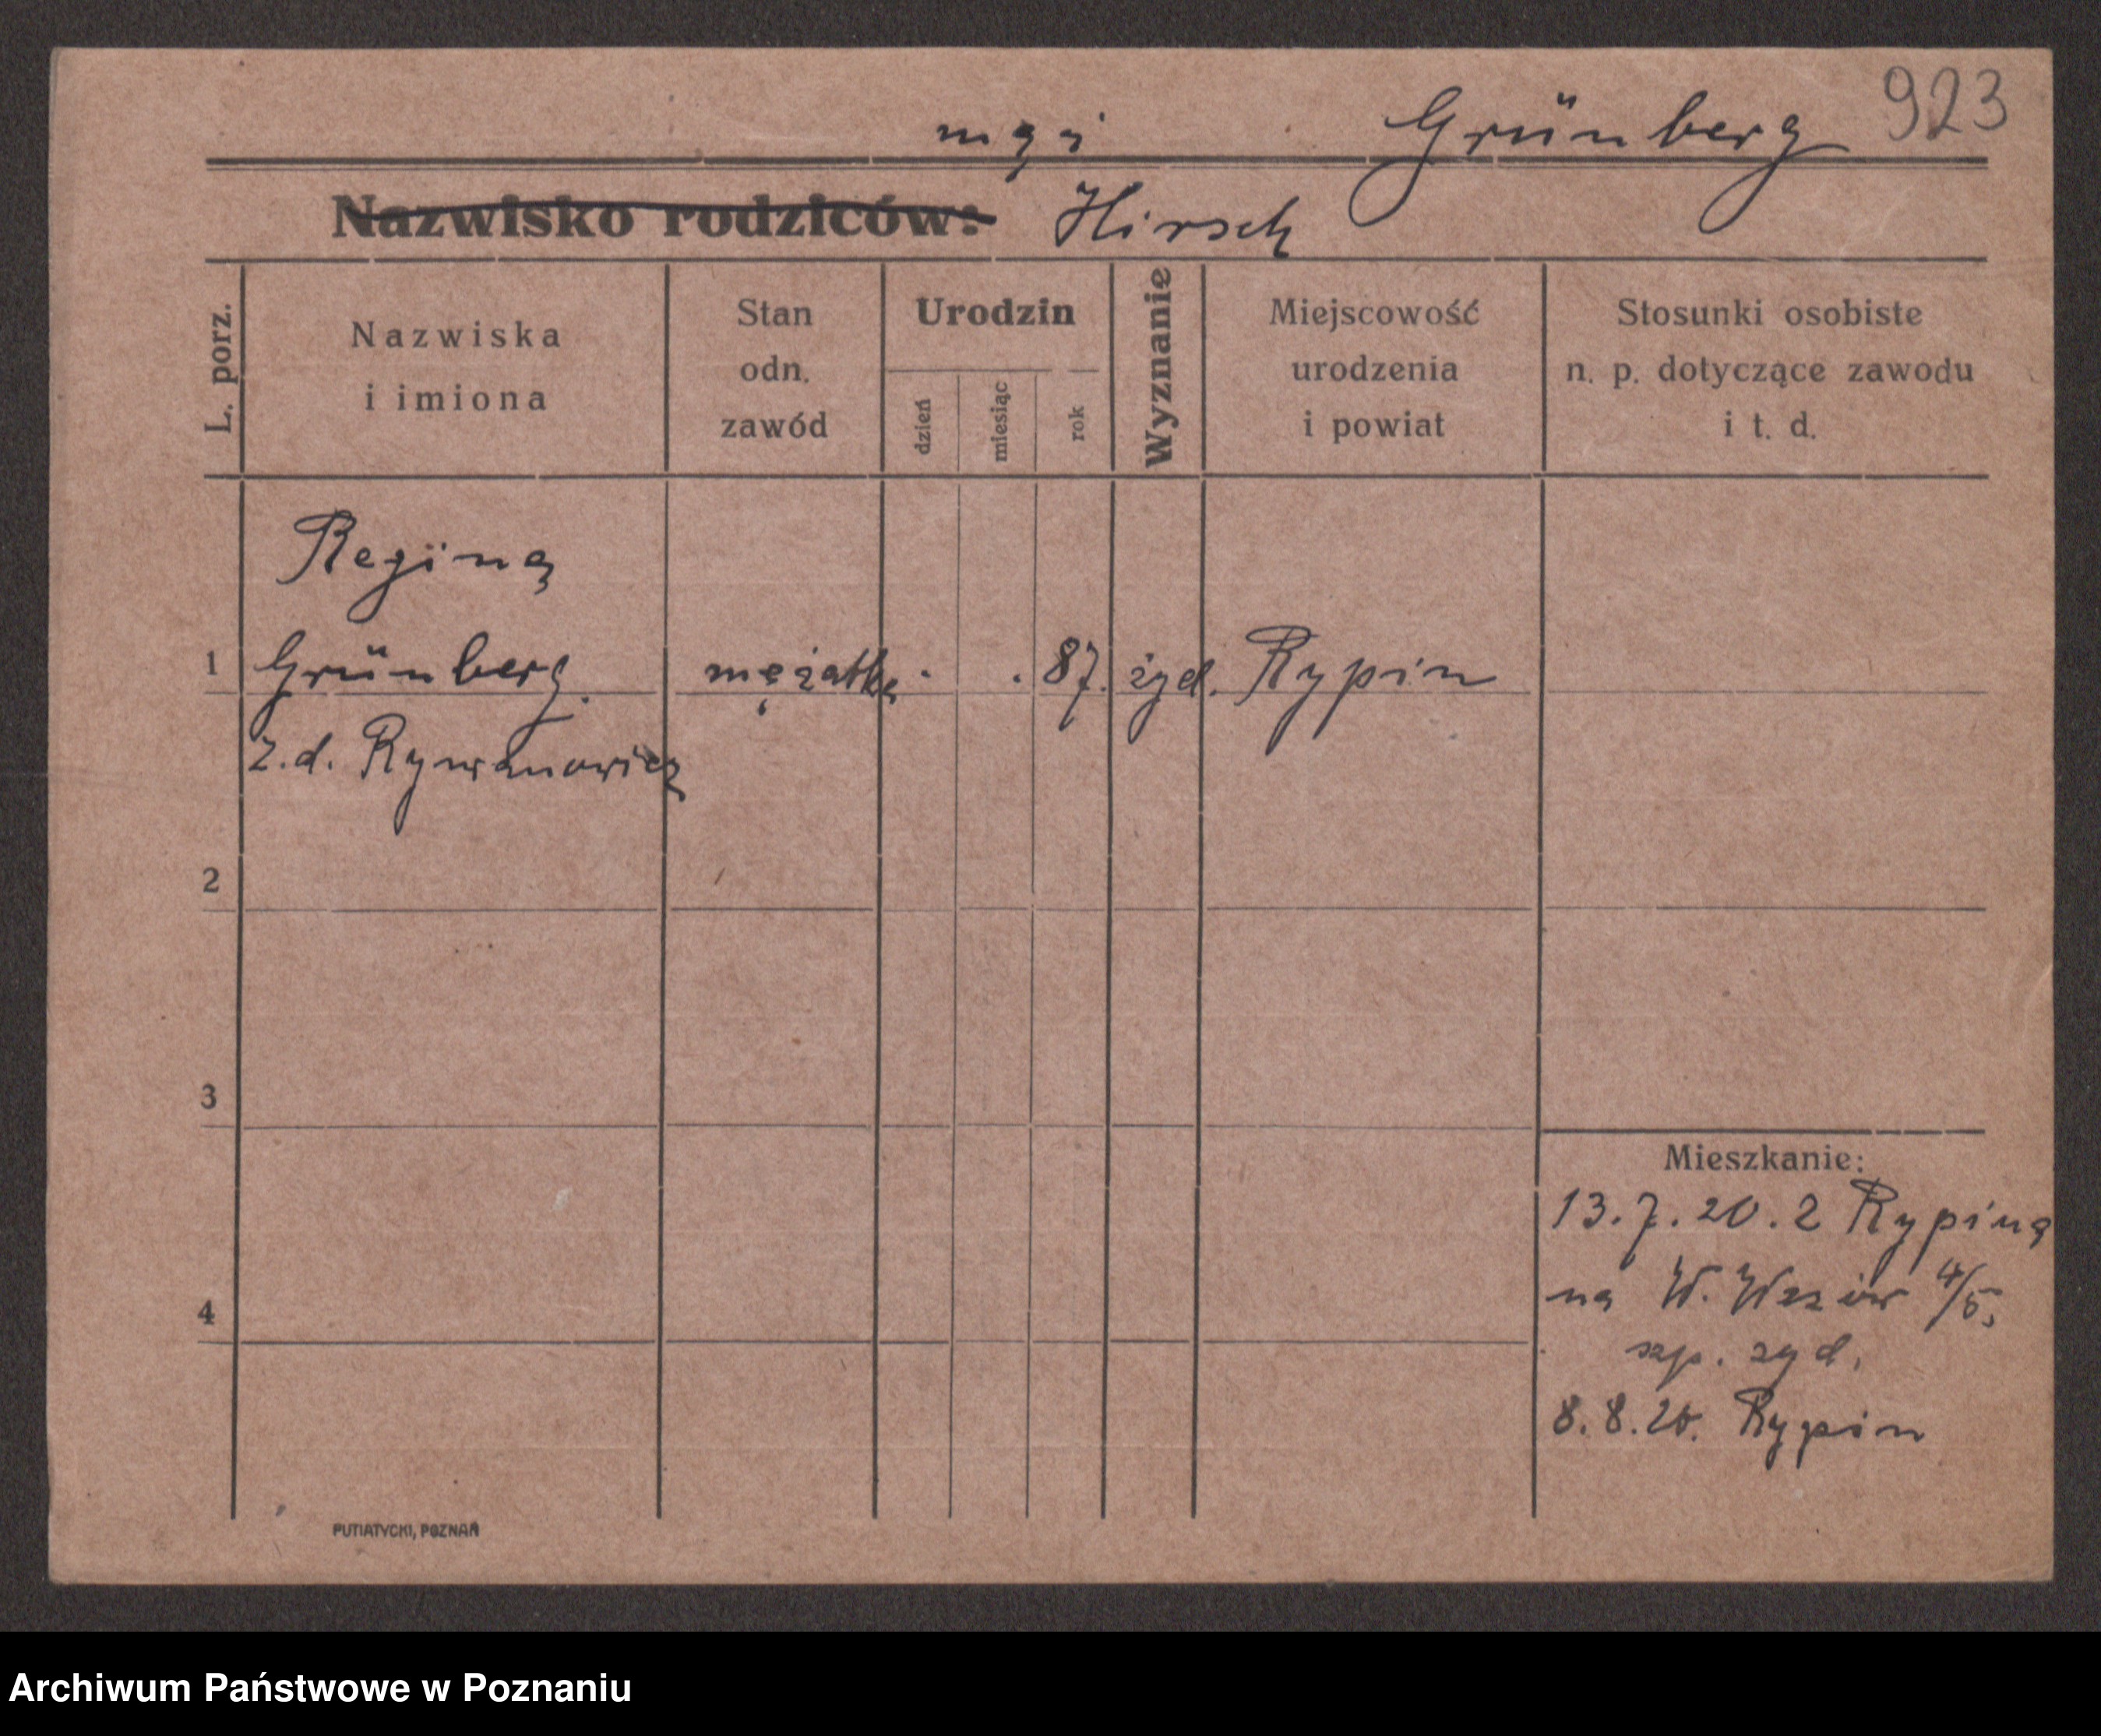 923
mąż Grünberg
Nazwisko rodziców: Hirsch
L. porz.
Nazwiska i imiona
Stan odn. zawód
Urodzin
dzień
miesiąc
rok
Wyznanie
Miejscowość urodzenia i powiat
Stosunki osobiste n. p. dotyczące zawodu i t. d.
Regina
1 Grünberg. mężatka . . 87. żyd. Rypin
z.d. Rywanowicz
2
3
4
Mieszkanie:
13.7.20. z Rypina
na W. 4/5,
szp. żyd.
8.8.20. Rypin
PUTIATYCKI, POZNAŃ
Archiwum Państwowe w Poznaniu